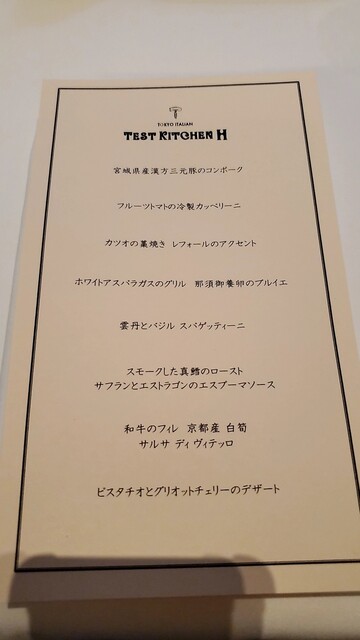 TOKYO ITALIAN
TEST KITCHEN H
宮城県産漢方三元豚のコンポーク
フルーツトマトの冷製カッペリーニ
カツオの藁焼き レフォールのアクセント
ホワイトアスパラガスのグリル 那須御養卵のブルイエ
雲丹とバジル スパゲッティーニ
スモークした真鱈のロースト
サフランとエストラゴンのエスプーマソース
和牛のフィレ 京都産 白筍
サルサ ディ ヴィテッロ
ピスタチオとグリオットチェリーのデザート